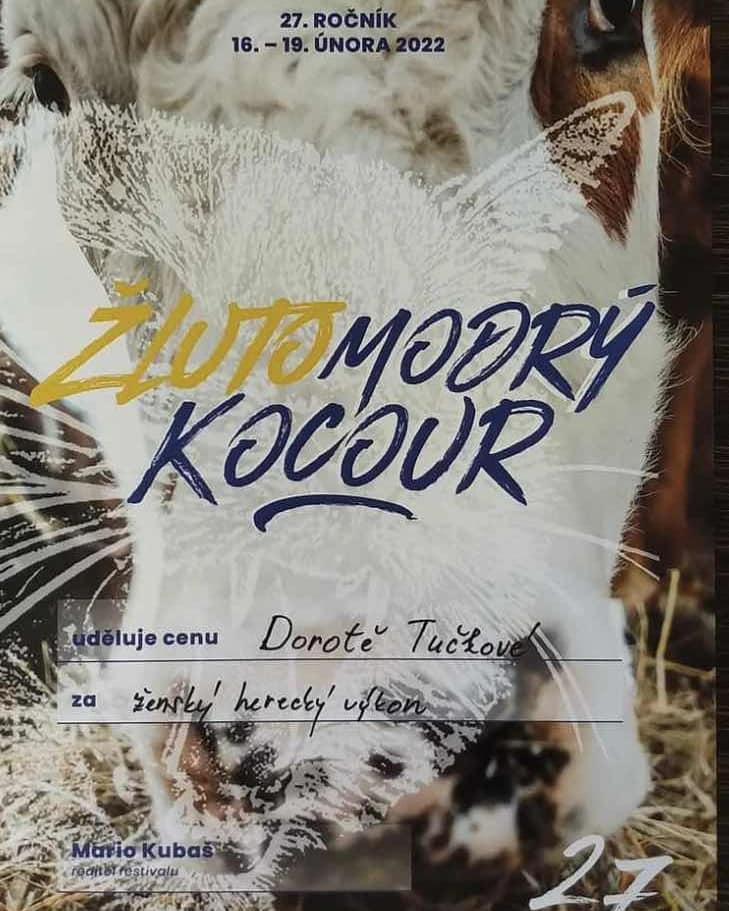 27. ROČNÍK
16. – 19. ÚNORA 2022
ŽLUTOMODRÝ
KOCOUR
uděluje cenu Dorotě Tučkové
za ženský herecký výkon
Mario Kubaš
ředitel festivalu
27